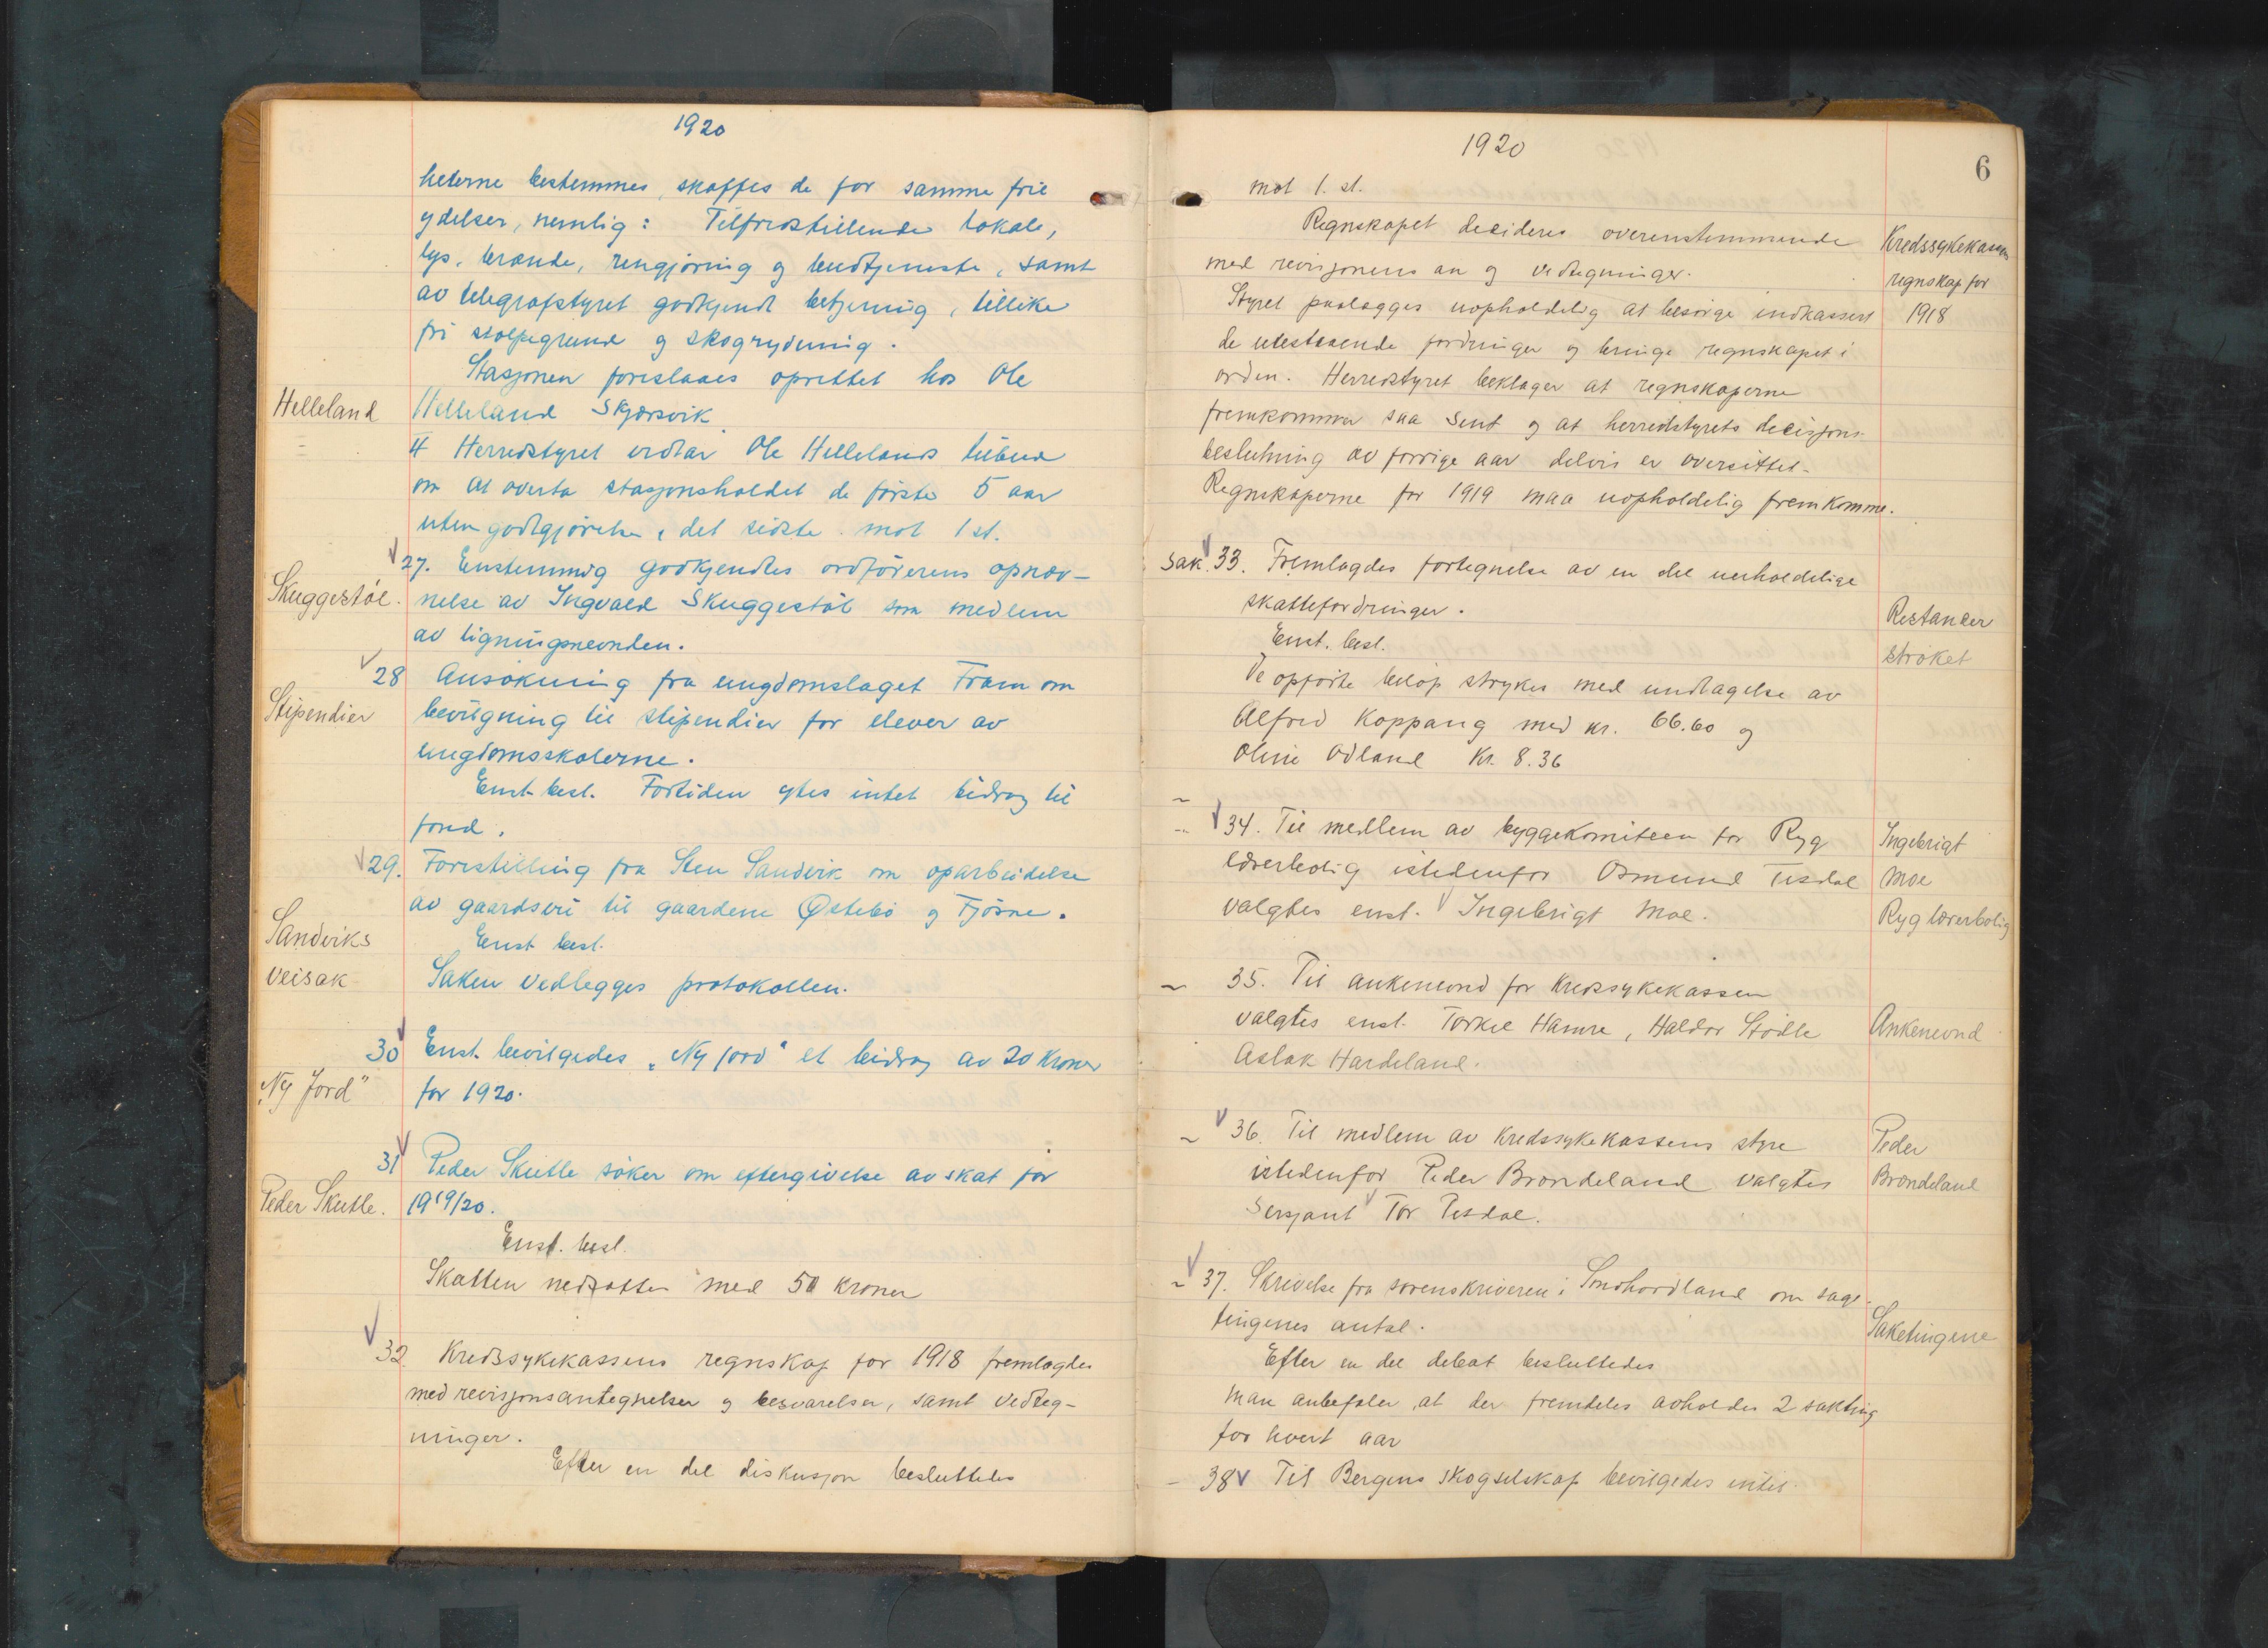 1920
heterne bestemmes, skaffes de for samme frie
ydelser, nemlig: Tilfredstillende lokale,
lys, brænde, rengjøring og budtjeneste, samt
av telegrafstyret godkjendt betjening, tillike
fri stolpegrund og skogrydning.
Stasjonen foreslaaes oprettet hos Ole
Helleland
Helleland Skjærsvik
4 Herredstyret vedtar Ole Hellelands tilbud
om at overta stasjonsholdet de første 5 aar
uten godtgjørelse, det sidste mot 1 st.
27. Enstemmig godkjendtes ordførerens opnæv-
Skuggestøl.
nelse av Ingvald Skuggestøl som medlem
av ligningsnevnden.
28 Ansøkning fra ungdomslaget Fram om
Stipendier
bevilgning til stipendier for elever av
ungdomsskolerne.
Enst. besl. Fortiden ytes intet bidrag til
fond.
29. Forestilling fra Sten Sandvik om oparbeidelse
av gaardsvei til gaardene Østebø og Fjøsne.
Sandviks
Enst besl.
veisak
Saken vedlegges protokollen.
30 Enst. bevilgedes „Ny jord" et bidrag av 20 kroner
„Ny Jord"
for 1920.
31 Peder Skutle søker om eftergivelse av skat for
Peder Skutle.
1919/20.
Enst. besl.
Skatten nedsattes med 50 kroner
32 Kredssykekassens regnskap for 1918 fremlagdes
med revisjonsantegnelser og besvarelser, samt vedteg-
ninger.
Efter en del diskusjon besluttedes
1920
6
mot 1. st.
Regnskapet decideres overenstemmende
Kredssykekassens
med revisjonens an og vedtegninger.
regnskap for
Styret paalægges uopholdelig at besørge indkassert
1918
de utestaaende fordringer og bringe regnskapet i
orden. Herredstyret beklager at regnskaperne
fremkommer saa sent og at herredstyrets decisjons-
beslutning av forrige aar delvis er oversittet.
Regnskaperne for 1919 maa uopholdelig fremkomme.
Sak. 33. Fremlagdes fortegnelse av en del uerholdelige
skattefordringer.
Restanser
Enst. besl.
strøket
De opførte beløp strykes med undtagelse av
Alfred Koppang med kr. 66.60 og
Oline Odland Kr. 8.36
~
" 34. Til medlem av byggekomiteen for Ryg
Ingebrigt
lærerbolig istedenfor Osmund Tesdal
Moe
valgtes enst. Ingebrigt Moe.
Ryg lærerbolig
~ 35. Til ankenevnd for Kredssykekassen
valgtes enst. Torkel Hamre, Haldor Stødle
Ankenevnd
Aslak Hardeland.
~ 36. Til medlem av Kredssykekassens styre
Peder
istedenfor Peder Brøndeland valgtes
Brøndeland
Sersjant Tor Tesdal.
~ 37. Skrivelse fra sorenskriveren i Søndhordland om sage-
tingenes antal.
Saketingene
Efter en del debat besluttedes
Man anbefaler, at der fremdeles avholdes 2 sakting
for hvert aar
- 38 Til Bergens skogselskap bevilgedes intet.